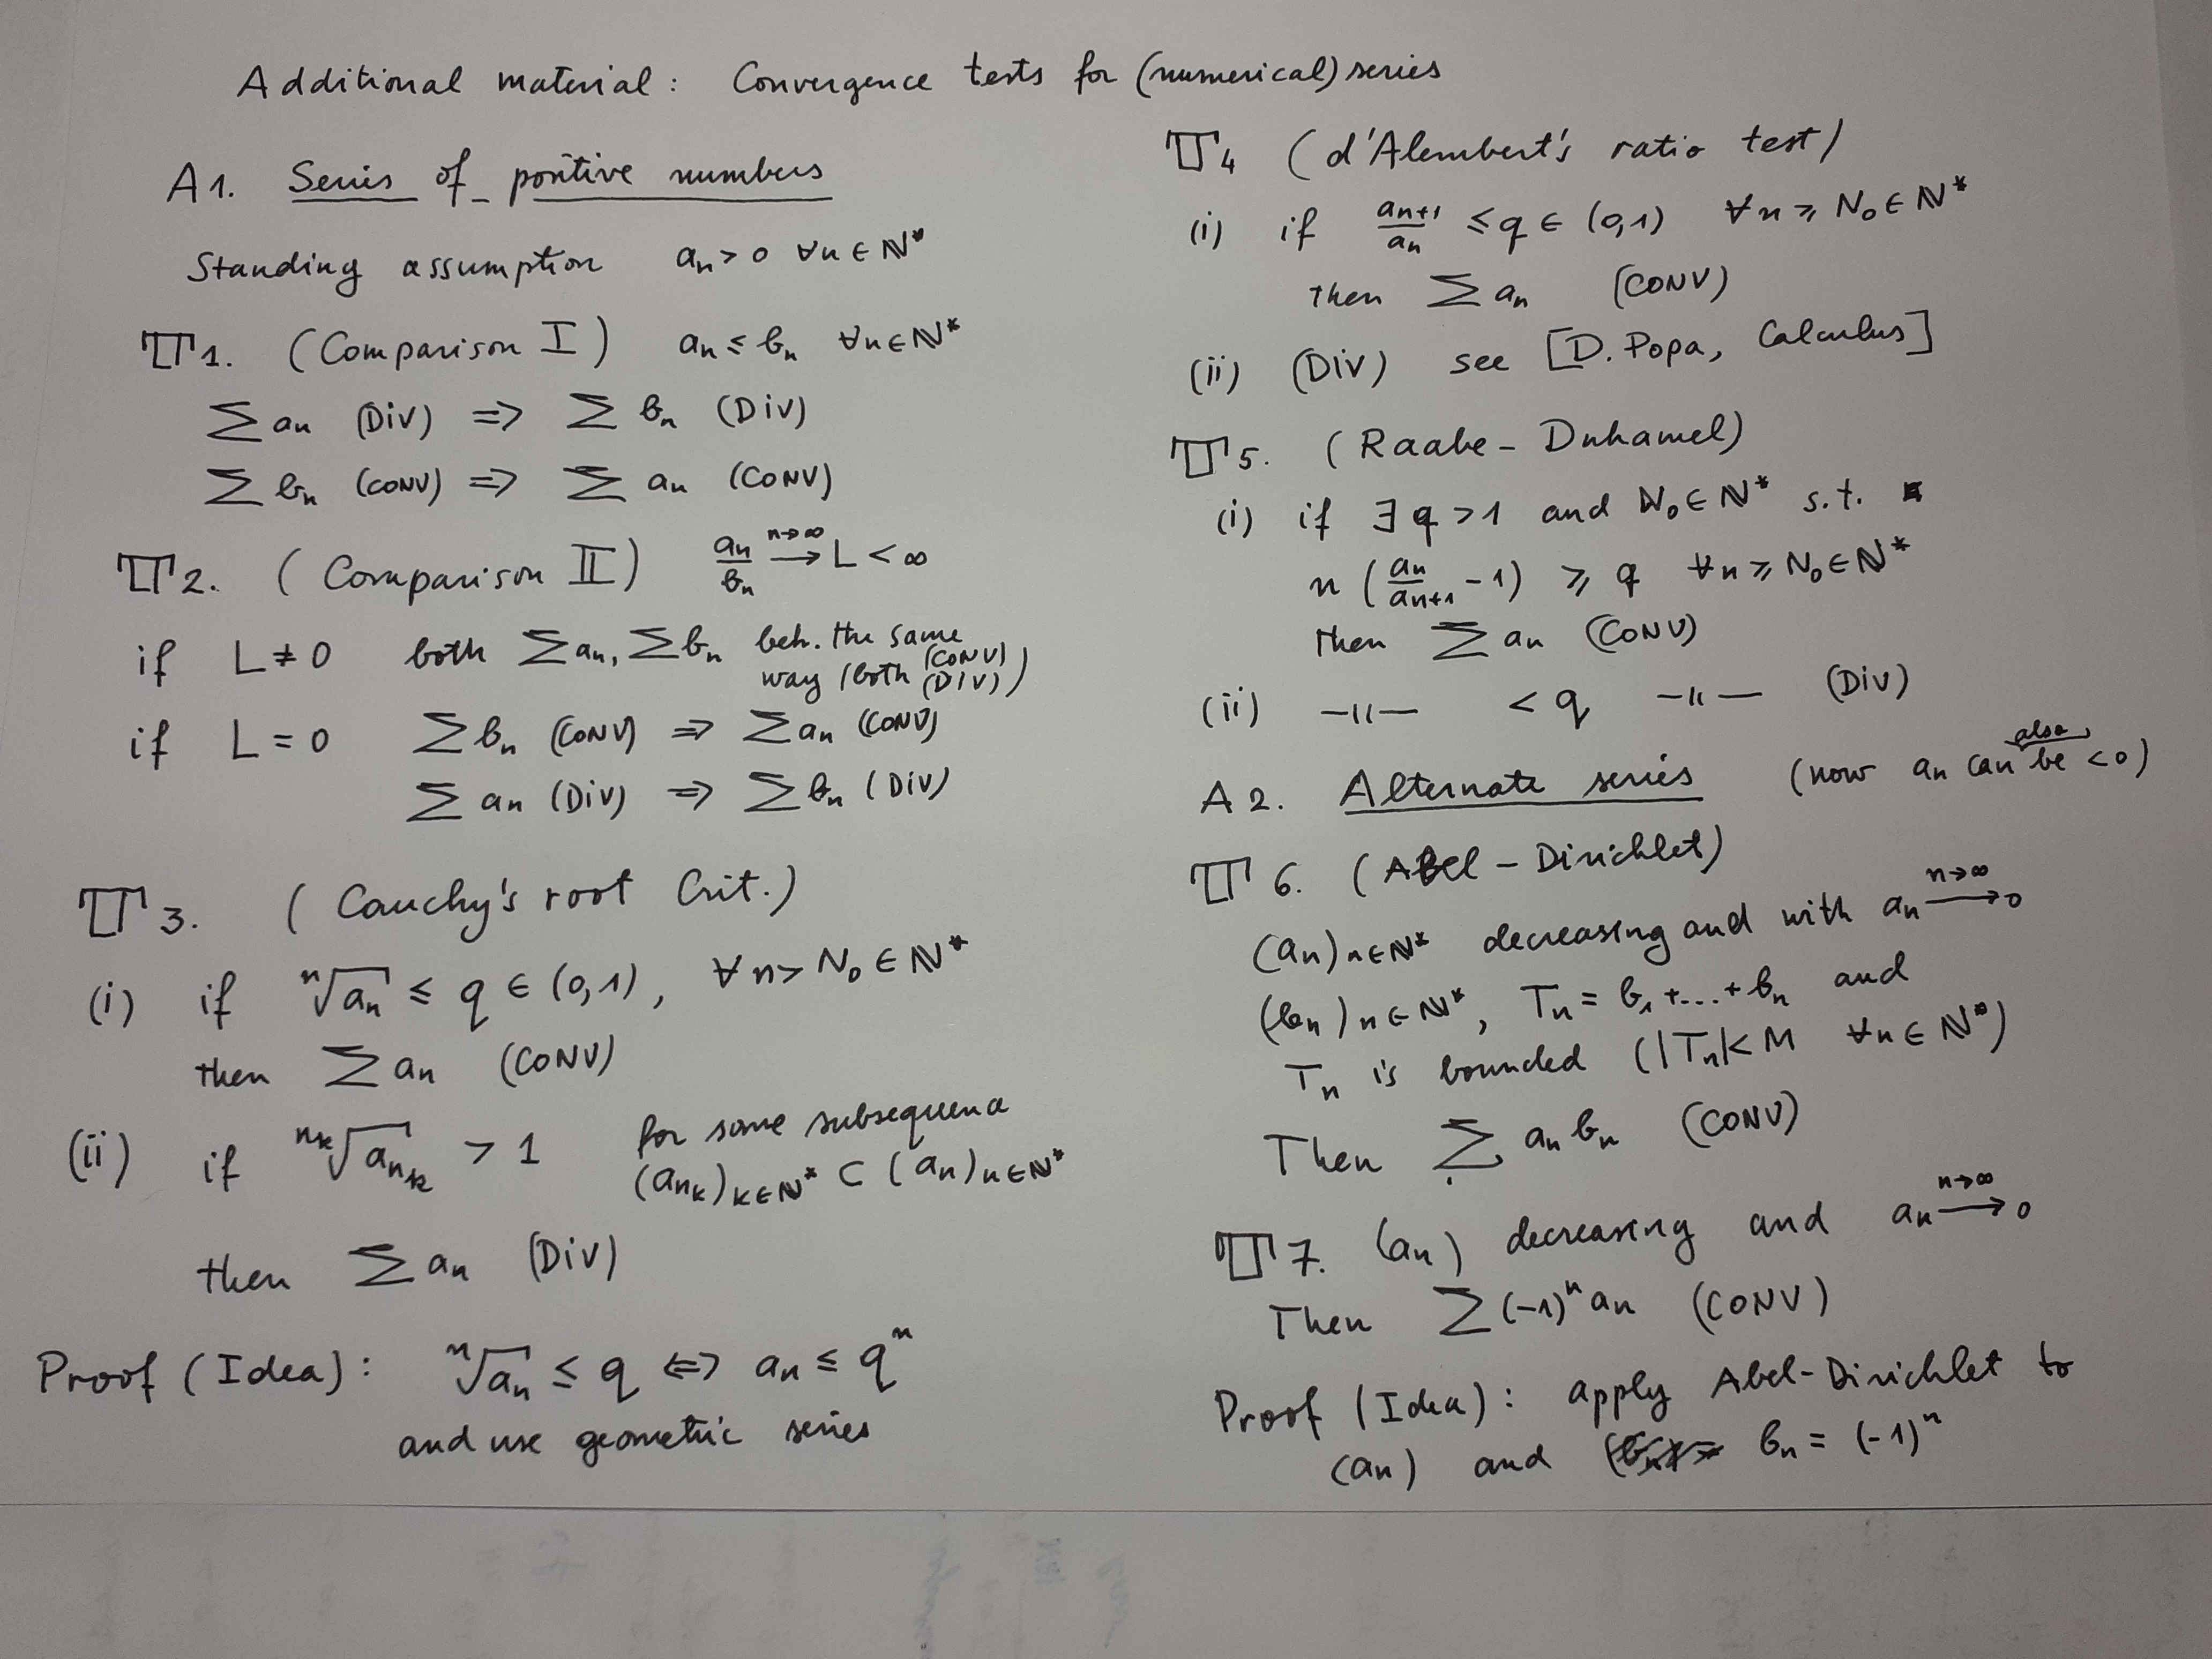 Additional material: Convergence tests for (numerical) series
A1. Series of positive numbers
Standing assumption aₙ > 0 ∀n ∈ ℕ*
T1. (Comparison I) aₙ ≤ bₙ ∀n ∈ ℕ*
∑ aₙ (Div) => ∑ bₙ (Div)
∑ bₙ (CONV) => ∑ aₙ (CONV)
T2. (Comparison II) aₙ/bₙ →(n→∞) L < ∞
if L ≠ 0 both ∑ aₙ, ∑ bₙ beh. the same
way (both (CONV) (DIV))
if L = 0 ∑ bₙ (CONV) => ∑ aₙ (CONV)
∑ aₙ (Div) => ∑ bₙ (Div)
T3. (Cauchy's root Crit.)
(i) if ⁿ√aₙ ≤ q ∈ (0,1), ∀n > N₀ ∈ ℕ*
then ∑ aₙ (CONV)
(ii) if ^{n_k}√a_{n_k} > 1 for some subsequence
(a_{n_k})_{k∈ℕ*} ⊂ (aₙ)_{n∈ℕ*}
then ∑ aₙ (Div)
Proof (Idea): ⁿ√aₙ ≤ q <=> aₙ ≤ qⁿ
and use geometric series
T4 (d'Alembert's ratio test)
(i) if aₙ₊₁/aₙ ≤ q ∈ (0,1) ∀n ≥ N₀ ∈ ℕ*
then ∑ aₙ (CONV)
(ii) (Div) see [D. Popa, Calculus]
T5. (Raabe - Duhamel)
(i) if ∃ q > 1 and N₀ ∈ ℕ* s.t.
n (aₙ/aₙ₊₁ - 1) ≥ q ∀n ≥ N₀ ∈ ℕ*
then ∑ aₙ (CONV)
(ii) —"— < q —"— (Div)
A2. Alternate series (now aₙ can also be < 0)
T6. (Abel - Dirichlet)
(aₙ)_{n∈ℕ*} decreasing and with aₙ →(n→∞) 0
(bₙ)_{n∈ℕ*}, Tₙ = b₁ + ... + bₙ and
Tₙ is bounded (|Tₙ| < M ∀n ∈ ℕ*)
Then ∑ aₙ bₙ (CONV)
T7. (aₙ) decreasing and aₙ →(n→∞) 0
Then ∑ (-1)ⁿ aₙ (CONV)
Proof (Idea): apply Abel-Dirichlet to
(aₙ) and bₙ = (-1)ⁿ